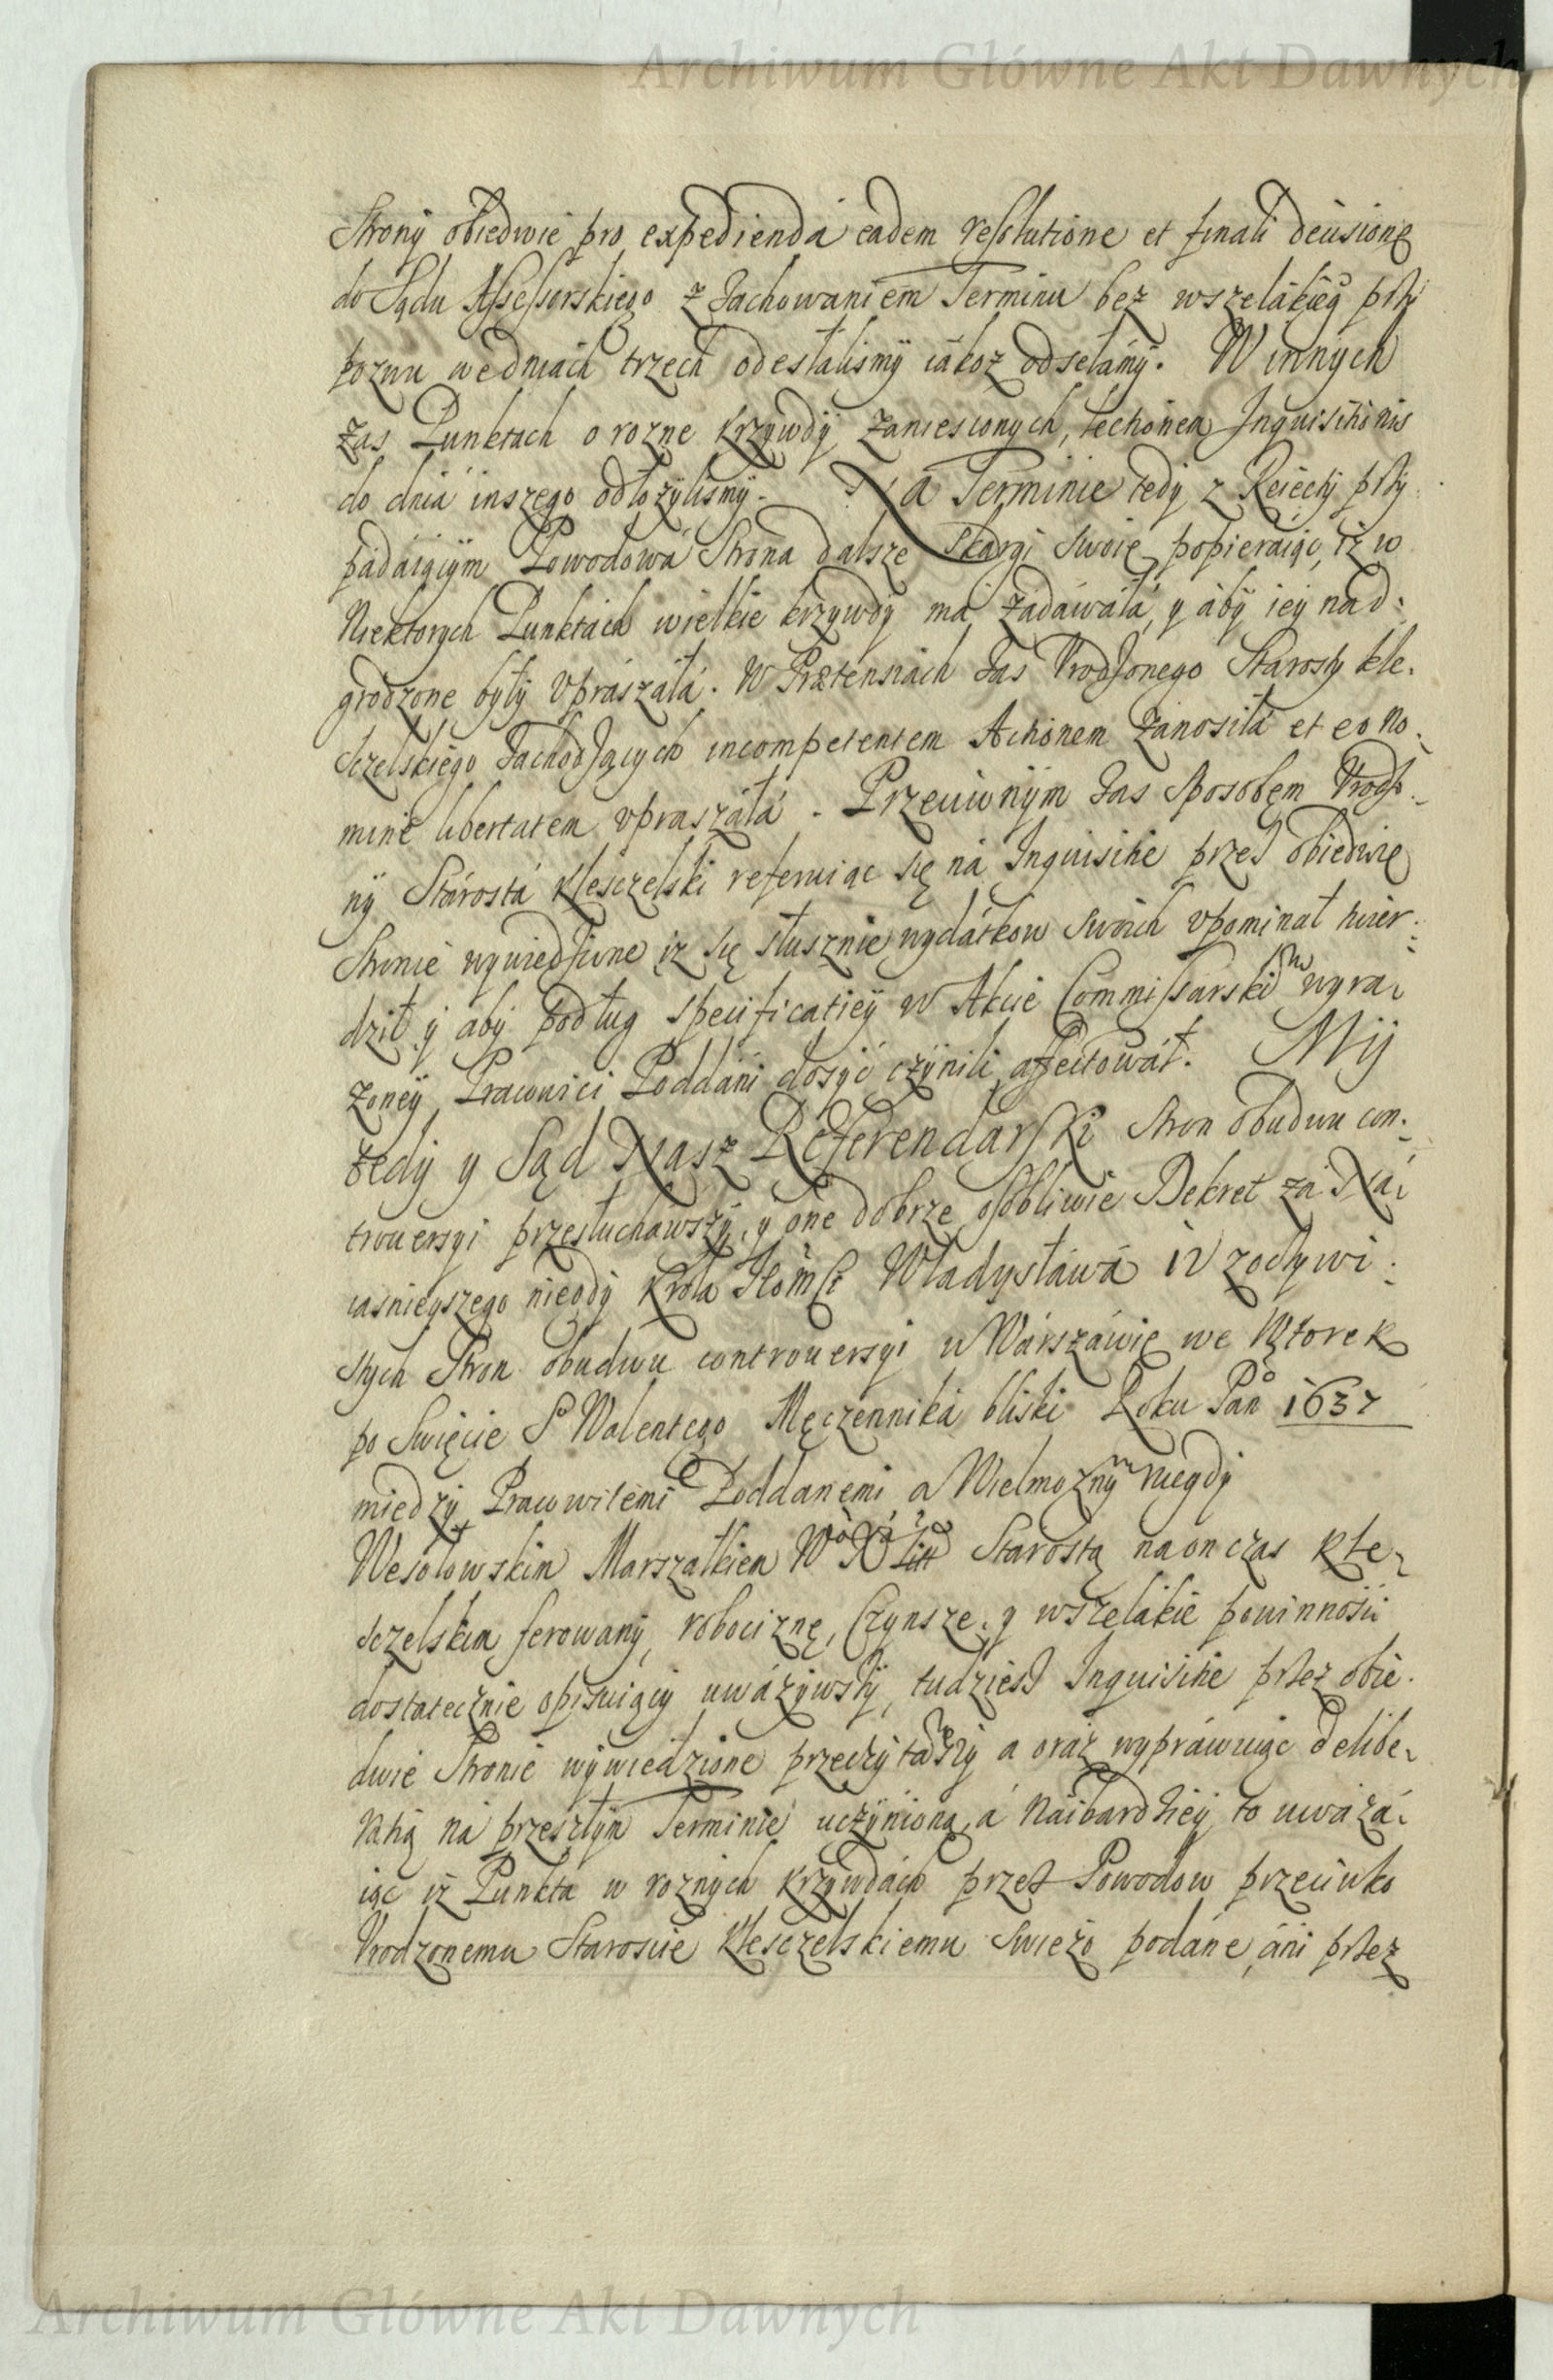 Archiwum Główne Akt Dawnych
Strony obiedwie pro expedienda eadem resolutione et finali decisione
do Sądu Assessorskiego z zachowaniem Terminu bez wszelákieg° przy
pozwu wedniach trzech odesłalismy iákoż odsełamy. W innych
zas Punktach o rozne krzywdy zaniesionych, lectionem Inquisitionis
do dnia inszego odłozylismy. Na Terminie tedy z Reiecty przy
padáiącym Powodowa Strona dalsze skargi swoie popieraiąc, iż w
Niektorych Punktach wielkie krzywdy ma zadawała, y aby iey nad:
grodzone były vpraszałá. W Prætensiach zas Vrodzonego Starosty kle:
sczelskiego zachodzących incompetentem Actionem zanosiłá et eo no:
mine libertatem vpraszáłá. Przeciwnym zas sposobem Vrodzo:
ny Stárostá Kleszczelski referuiąc się ná Inquisitie przez obiedwie
Stronie wywiedzione iz się słusznie wydátkow swoich vpominał twier:
dził y aby podług specificatiey w Akcie Commissarskim wyra:
zoney Prawnici Poddáni dosyć czynili affectowáł. My
tedy y Sąd Nasz Referendarski stron obudwu con:
trouersyi przesłuchawszy, y one dobrze, osobliwie Dekret zá Ná:
iasnieyszego niegdy Krola JEomści Władysławá IV zoczywi:
stych Stron obudwu controuersyi w Wárszáwie we Wtorek
po Swięcie S° Walentego Męczenniká bliski Roku Pań° 1637
miedzy Prawwitemi Poddanemi a Wielmożnym niegdy
Wesołowskim Marszałkiem W° X° Litt° Starostą naonczas Kle:
sczelskim ferowany, robociznę, Czynsze, y wszelákie powinności
dostatecznie opisuiący uwáżywszy, tudziesz Inquisitie przez obie:
dwie Stronie wywiedzione przeczytawszy a oraz wypráwuiąc delibe:
ratią ná przeszłym Terminie uczynioną, á náibardziey to uważá:
iąc iż Punktá w roznych krzywdách przez Powodow przeciwko
Vrodzonemu Staroscie Kleszczelskiemu swieżo podáne, áni przez
Archiwum Główne Akt Dawnych